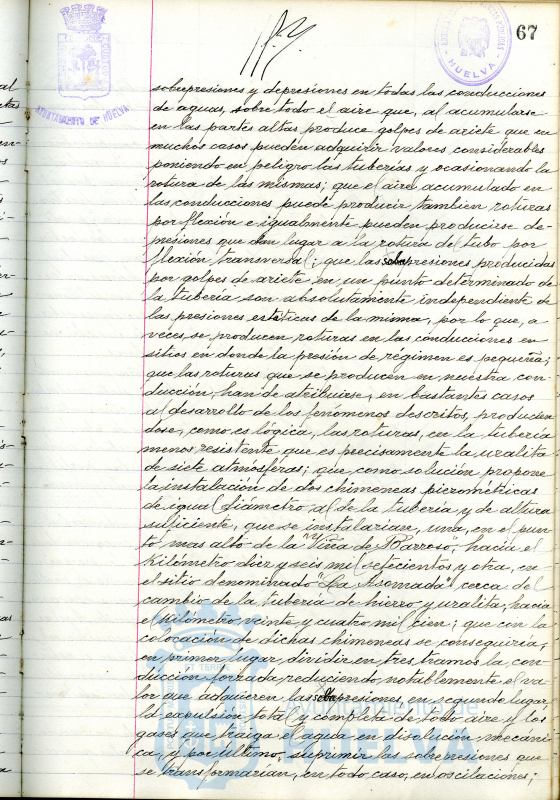 67
AYUNTAMIENTO DE HUELVA
HUELVA
sobrepresiones y depresiones en todas las conducciones
de aguas, sobre todo el aire que, al acumularse
en las partes altas produce golpes de ariete que en
muchos casos pueden adquirir valores considerables
poniendo en peligro las tuberías y ocasionando la
rotura de las mismas; que el aire acumulado en
las conducciones puede producir tambien roturas
por flexión e igualmente pueden producirse de-
presiones que dan lugar a la rotura del tubo por
flexión transversal; que las sobrepresiones producidas
por golpes de ariete en un punto determinado de
la tubería son absolutamente independiente de
las presiones estéticas de la misma, por lo que, a
veces, se producen roturas en las conducciones en
sitios en donde la presión de régimen es pequeña;
que las roturas que se producen en nuestra con
ducción, han de atribuirse, en bastantes casos
al desarrollo de los fenomenos descritos, producien
dose, como es lógica, las roturas, en la tubería
menos resistente que es precisamente la uralita
de siete atmósferas; que como solución propone
la instalación de dos chimeneas piezométricas
de igual diámetro al de la tubería y de altura
suficiente, que se instalarian, una, en el pun
to mas alto de la "Viña de Barroso", hacia el
Kilómetro diez y seis mil setecientos y otra, en
el sitio denominado "La Asomada" cerca del
cambio de la tuberia de hierro y uralita, hacia
el Kilómetro veinte y cuatro mil cien; que con la
colocación de dichas chimeneas se conseguiría,
en primer lugar, dividir en tres tramos la con
ducción forzada, reduciendo notablemente el va
lor que adquieren las sobrepresiones, en segundo lugar,
la expulsión total y completa de todo aire y los
gases que traiga el agua en disolución mecáni
ca, y por último, suprimir las sobrepresiones que
se transformarían, en todo caso, en oscilaciones;
Ayuntamiento de
HUELVA